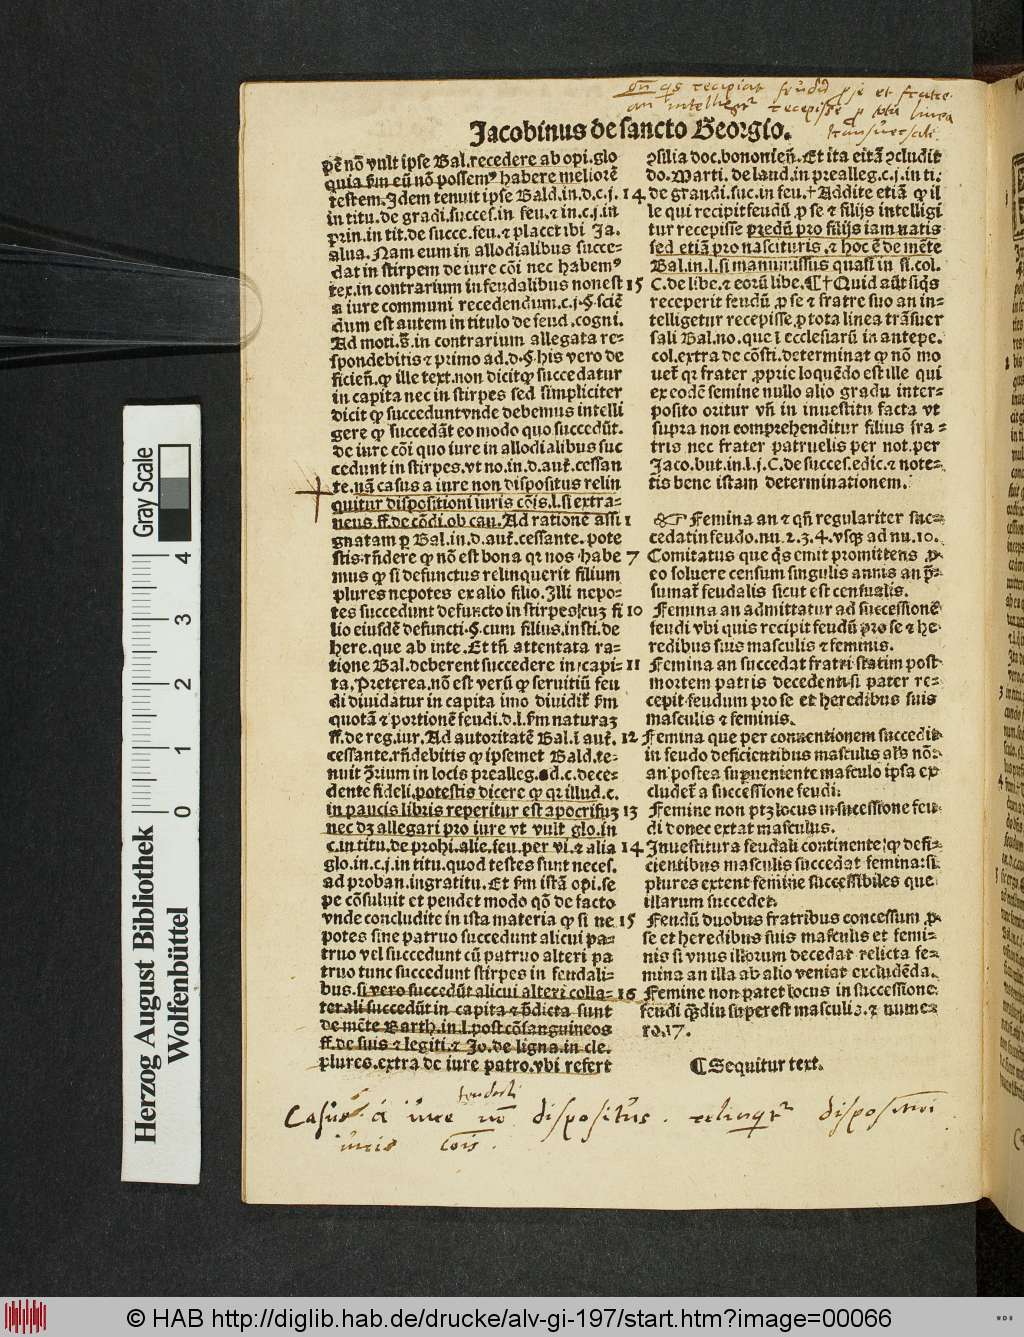 Jacobinus de sancto Georgio.
pe nō vult ipse Bal.recedere ab opi.glo
quia fm eū nō possemꝰ habere meliorē
testem.Idem tenuit ipse Bald.in.d.c.j.
in titu.de gradi.succes.in feu.⁊ in.c.j.in
prin.in tit.de succe.feu.⁊ placet ibi Ja.
alua. Nam eum in allodialibus succe=
dat in stirpem de iure cōi nec habemꝰ
tex.in contrarium in feudalibus non est
a iure communi recedendum.c.j.§ sciē
dum est autem in titulo de feud.cogni.
Ad moti.ꝟ.in contrarium allegata re=
spondebitis ⁊ primo ad.d.§ his vero de
ficien.ꝙ ille text.non dicit ꝙ succedatur
in capita nec in stirpes sed simpliciter
dicit ꝙ succedunt vnde debemus intelli
gere ꝙ succedāt eo modo quo succedūt.
de iure cōi quo iure in allodialibus suc
cedunt in stirpes.vt no.in.d.aut.cessan
te.nā casus a iure non dispositus relin
quitur dispositioni iuris cōis.l.si extra=
neus.ff.de cōdi.ob cau. Ad rationē assi
gnatam ꝑ Bal.in.d.aut.cessante. pote
stis.rñdere ꝙ nō est bona qꝛ nos habe
mus ꝙ si defunctus relinquerit filium
plures nepotes ex alio filio.Illi nepo=
tes succedunt defuncto in stirpes cuꝫ fi
lio eiusdē defuncti.§.cum filius.insti.de
here.que ab inte. Et tñ attentata ra=
tione Bal.deberent succedere in capi=
ta. Preterea.nō est verū ꝙ seruitiū feu
di diuidatur in capita imo diuidit fm
quotā ⁊ portionē feudi.d.l.fm naturaꝫ
ff.de reg.iur. Ad autoritatē Bal.ī aut.
cessante.rñdebitis ꝙ ipsemet Bald.te=
nuit ꝯrium in locis prealleg. d.c.dece=
dente fideli.potestis dicere ꝙ qꝛ illud.c.
in paucis libris reperitur est apocrifuꝫ
nec dꝫ allegari pro iure vt vult glo.in
c.in titu.de prohi.alie.feu.per vi.⁊ alia
glo.in.c.j.in titu.quod testes sunt neces.
ad proban.ingratitu. Et fm istā opi.se
pe cōsuluit et pendet modo qō de facto
vnde concludite in ista materia ꝙ si ne
potes sine patruo succedunt alicui pa=
truo vel succedunt cū patruo alteri pa
truo tunc succedunt stirpes in feudali=
bus.si vero succedūt alicui alteri colla=
terali succedūt in capita ⁊ p̄dicta sunt
de mēte Barth.in.l.post cōsanguineos
ff.de suis ⁊ legiti.⁊ Jo.de ligna.in cle.
plures.extra de iure patro.vbi refert
ꝯsilia doc.bononieñ. Et ita etiā ꝯcludit
do. Marti. de laud.in prealleg.c.j.in ti.
14 de grandi.suc.in feu.† Addite etiā ꝙ il
le qui recipit feudū ꝓ se ⁊ filijs intelligi
tur recepisse predū pro filijs iam natis
sed etiā pro nascituris.⁊ hoc ē de mēte
Bal.in.l.si manumissus quasi in fi.col.
15 C.de libe.⁊ eorū libe. ¶ † Quid aūt si qs
receperit feudū ꝓ se ⁊ fratre suo an in=
telligetur recepisse.ꝓ tota linea trāsuer
sali Bal.no.que ī ecclesiarū in antepe.
col.extra de cōsti.determinat ꝙ nō mo
uet qꝛ frater ꝓprie loquēdo est ille qui
ex eodē semine nullo alio gradu inter=
posito oritur vñ in inuestitu facta vt
supra non comprehenditur filius fra=
tris nec frater patruelis per not.per
Jaco.but.in.l.j.C.de succes.edic.⁊ note=
tis bene istam determinationem.
1 ☞ Femina an ⁊ qñ regulariter suc=
cedat in feudo.nu.2.3.4.vsqꝫ ad nu.10.
7 Comitatus que qs emit promittens ꝓ=
eo soluere censum singulis annis an p̄=
sumat feudalis sicut est censualis.
10 Femina an admittatur ad successionē
feudi vbi quis recipit feudū pro se ⁊ he=
redibus suis masculis ⁊ feminis.
11 Femina an succedat fratri statim post
mortem patris decedentis.si pater re=
cepit feudum pro se et heredibus suis
masculis ⁊ feminis.
12 Femina que per conuentionem succedit
in feudo deficientibus masculis als nō:
an postea superueniente masculo ipsa ex
cludet a successione feudi:
13 Femine non ptꝫ locus in successione feu=
di donec extat masculus.
14 Inuestitura feudali continente ꝙ defi=
cientibus masculis succedat femina:si
plures extent femine successibiles que
illarum succedet.
15 Feudū duobus fratribus concessum ꝓ=
se et heredibus suis masculis et femi=
nis si vnus illorum decedat relicta fe=
mina an illa ab alio veniat excludēda.
16 Femine non patet locus in successione
feudi qdiu superest masculis.⁊ nume=
ro.17.
¶ Sequitur text.
feudali
Casus à iure nō dispositus. relinqr dispositioni
iuris cōis.
Herzog August Bibliothek
Wolfenbüttel
0 1 2 3 4
Gray Scale
© HAB http://diglib.hab.de/drucke/alv-gi-197/start.htm?image=00066